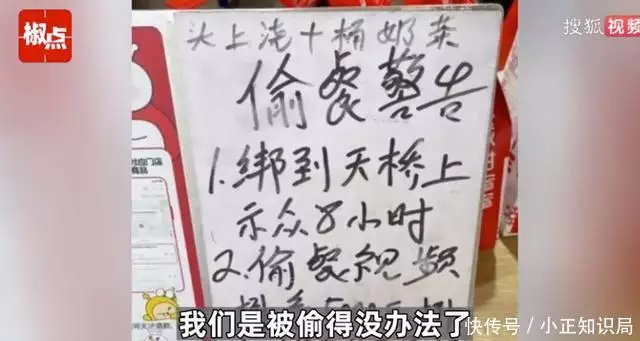 椒点
搜狐视频
头上浇十桶奶茶
偷餐警告
1.绑到天桥上
示众8小时
2.偷餐视频
我们是被偷得没办法了
快传号 / 小正知识局